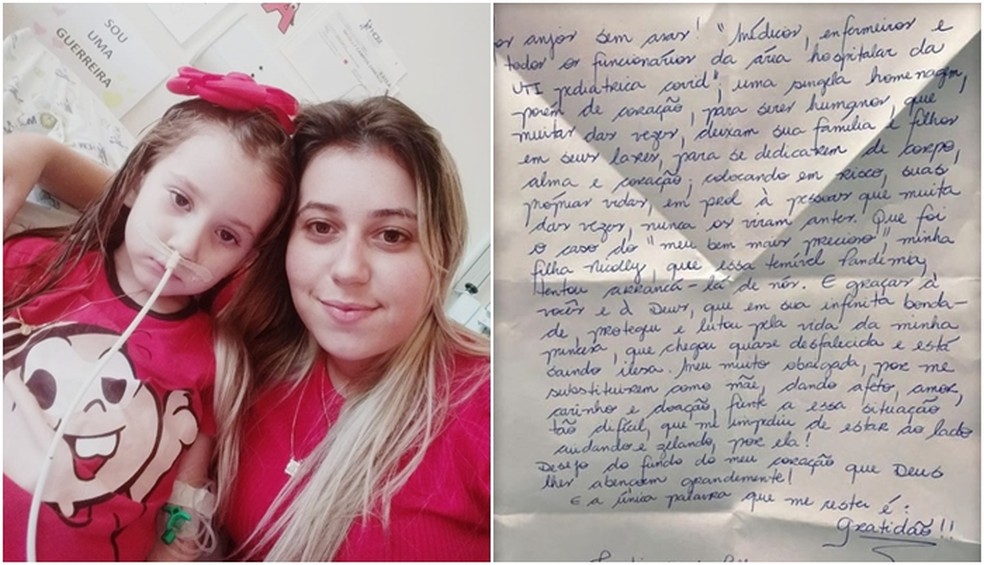 SOU
UMA
GUERREIRA
os anjos sem asas! "Médicos, enfermeiros e
todos os funcionários da área hospitalar da
UTI pediatrica covid", uma singela homenagem,
porém de coração, para seres humanos, que
muitas das vezes, deixam sua família e filhos
em seus lares, para se dedicarem de corpo,
alma e coração, colocando em risco, suas
próprias vidas, em prol à pessoas que muita
das vezes, nunca os viram antes. Que foi
o caso do "meu bem mais precioso", minha
filha Nicolly, que essa temível Pandemia,
tentou arrancá-la de nós. E graças à
vocês e à Deus, que em sua infinita bonda-
de, protegeu e lutou pela vida da minha
princesa, que chegou quase desfalecida e está
saindo ilesa. Meu muito obrigada, por me
substituirem como mãe, dando afeto, amor,
carinho e doação, frente a essa situação
tão difícil, que me impediu de estar ao lado
cuidando e zelando, por ela!
Desejo do fundo do meu coração que Deus
lhes abençoem grandemente!
E a única palavra que me resta é:
Gratidão!!